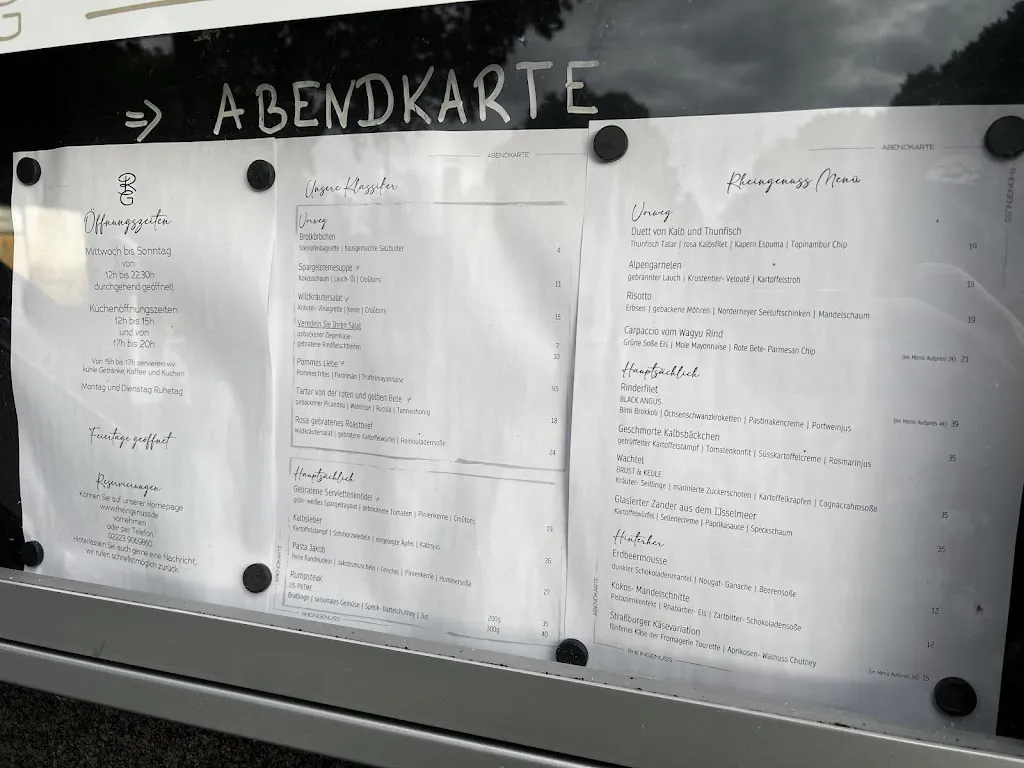 ⇒ ABENDKARTE
RG
Öffnungszeiten
Mittwoch bis Sonntag
von
12h bis 22:30h
durchgehend geöffnet!
Küchenöffnungszeiten
12h bis 15h
und von
17h bis 20h
Von 15h bis 17h servieren wir
kühle Getränke, Kaffee und Kuchen
Montag und Dienstag Ruhetag
Feiertage geöffnet
Reservierungen
Können Sie auf unserer Homepage
www.rheingenuss.de
vornehmen
oder per Telefon
02223 9069860
Hinterlassen Sie auch gerne eine Nachricht,
wir rufen schnellstmöglich zurück.
ABENDKARTE
Unsere Klassiker
Vorweg
Brotkörbchen
Steinofenbaguette | hausgemachte Salzbutter 4
Spargelcremesuppe
Kokosschaum | Lauch- Öl | Croûtons 11
Wildkräutersalat
Kräuter- Vinaigrette | Kerne | Croûtons 15
Veredeln Sie Ihren Salat
gebackener Ziegenkäse 7
gebratene Rindfleischstreifen 10
Pommes Liebe
Pommes frites | Parmesan | Trüffelmayonnaise 9,5
Tartar von der roten und gelben Bete
gebackener Picandou | Walnüsse | Rucola | Tannenhonig 18
Rosa gebratenes Roastbeef
Wildkräutersalat | gebratene Kartoffelwürfel | Remouladensoße 24
Hauptsächlich
Gebratene Serviettenknödel
grün- weißes Spargelragout | getrocknete Tomaten | Pinienkerne | Croûtons 19
Kalbsleber
Kartoffelstampf | Schmorzwiebeln | eingelegte Äpfel | Kalbsjus 26
Pasta Jakob
feine Bandnudeln | Jakobsmuscheln | Fenchel | Pinienkerne | Hummersoße 27
Rumpsteak
US PRIME
Bratlinge | saisonales Gemüse | Speck- Dattelchutney | Jus 200g 35
300g 40
RHEINGENUSS
ABENDKARTE
ABENDKARTE
RHEINGENUSS
Rheingenuss Menü
Vorweg
Duett von Kalb und Thunfisch
Thunfisch Tatar | rosa Kalbsfilet | Kapern Espuma | Topinambur Chip 19
Alpengarnelen
gebrannter Lauch | Krustentier- Velouté | Kartoffelstroh 19
Risotto
Erbsen | gebackene Möhren | Norderneyer Seeluftschinken | Mandelschaum 19
Carpaccio vom Wagyu Rind
Grüne Soße Eis | Mole Mayonnaise | Rote Bete- Parmesan Chip (im Menü Aufpreis 2€) 21
Hauptsächlich
Rinderfilet
BLACK ANGUS
Bimi Brokkoli | Ochsenschwanzkroketten | Pastinakencreme | Portweinjus (im Menü Aufpreis 4€) 39
Geschmorte Kalbsbäckchen
getrüffelter Kartoffelstampf | Tomatenkonfit | Süsskartoffelcreme | Rosmarinjus 35
Wachtel
BRUST & KEULE
Kräuter- Seitlinge | marinierte Zuckerschoten | Kartoffelkrapfen | Cognacrahmsoße 35
Glasierter Zander aus dem IJsselmeer
Kartoffelwürfel | Selleriecreme | Paprikasauce | Speckschaum 35
Hinterher
Erdbeermousse
dunkler Schokoladenmantel | Nougat- Ganache | Beerensoße 12
Kokos- Mandelschnitte
Pistazienkonfekt | Rhabarber- Eis | Zartbitter- Schokoladensoße 12
Straßburger Käsevariation
fünferlei Käse der Fromagerie Tourette | Aprikosen- Walnuss Chutney (im Menü Aufpreis 3€) 15
RHEINGENUSS
ABENDKARTE